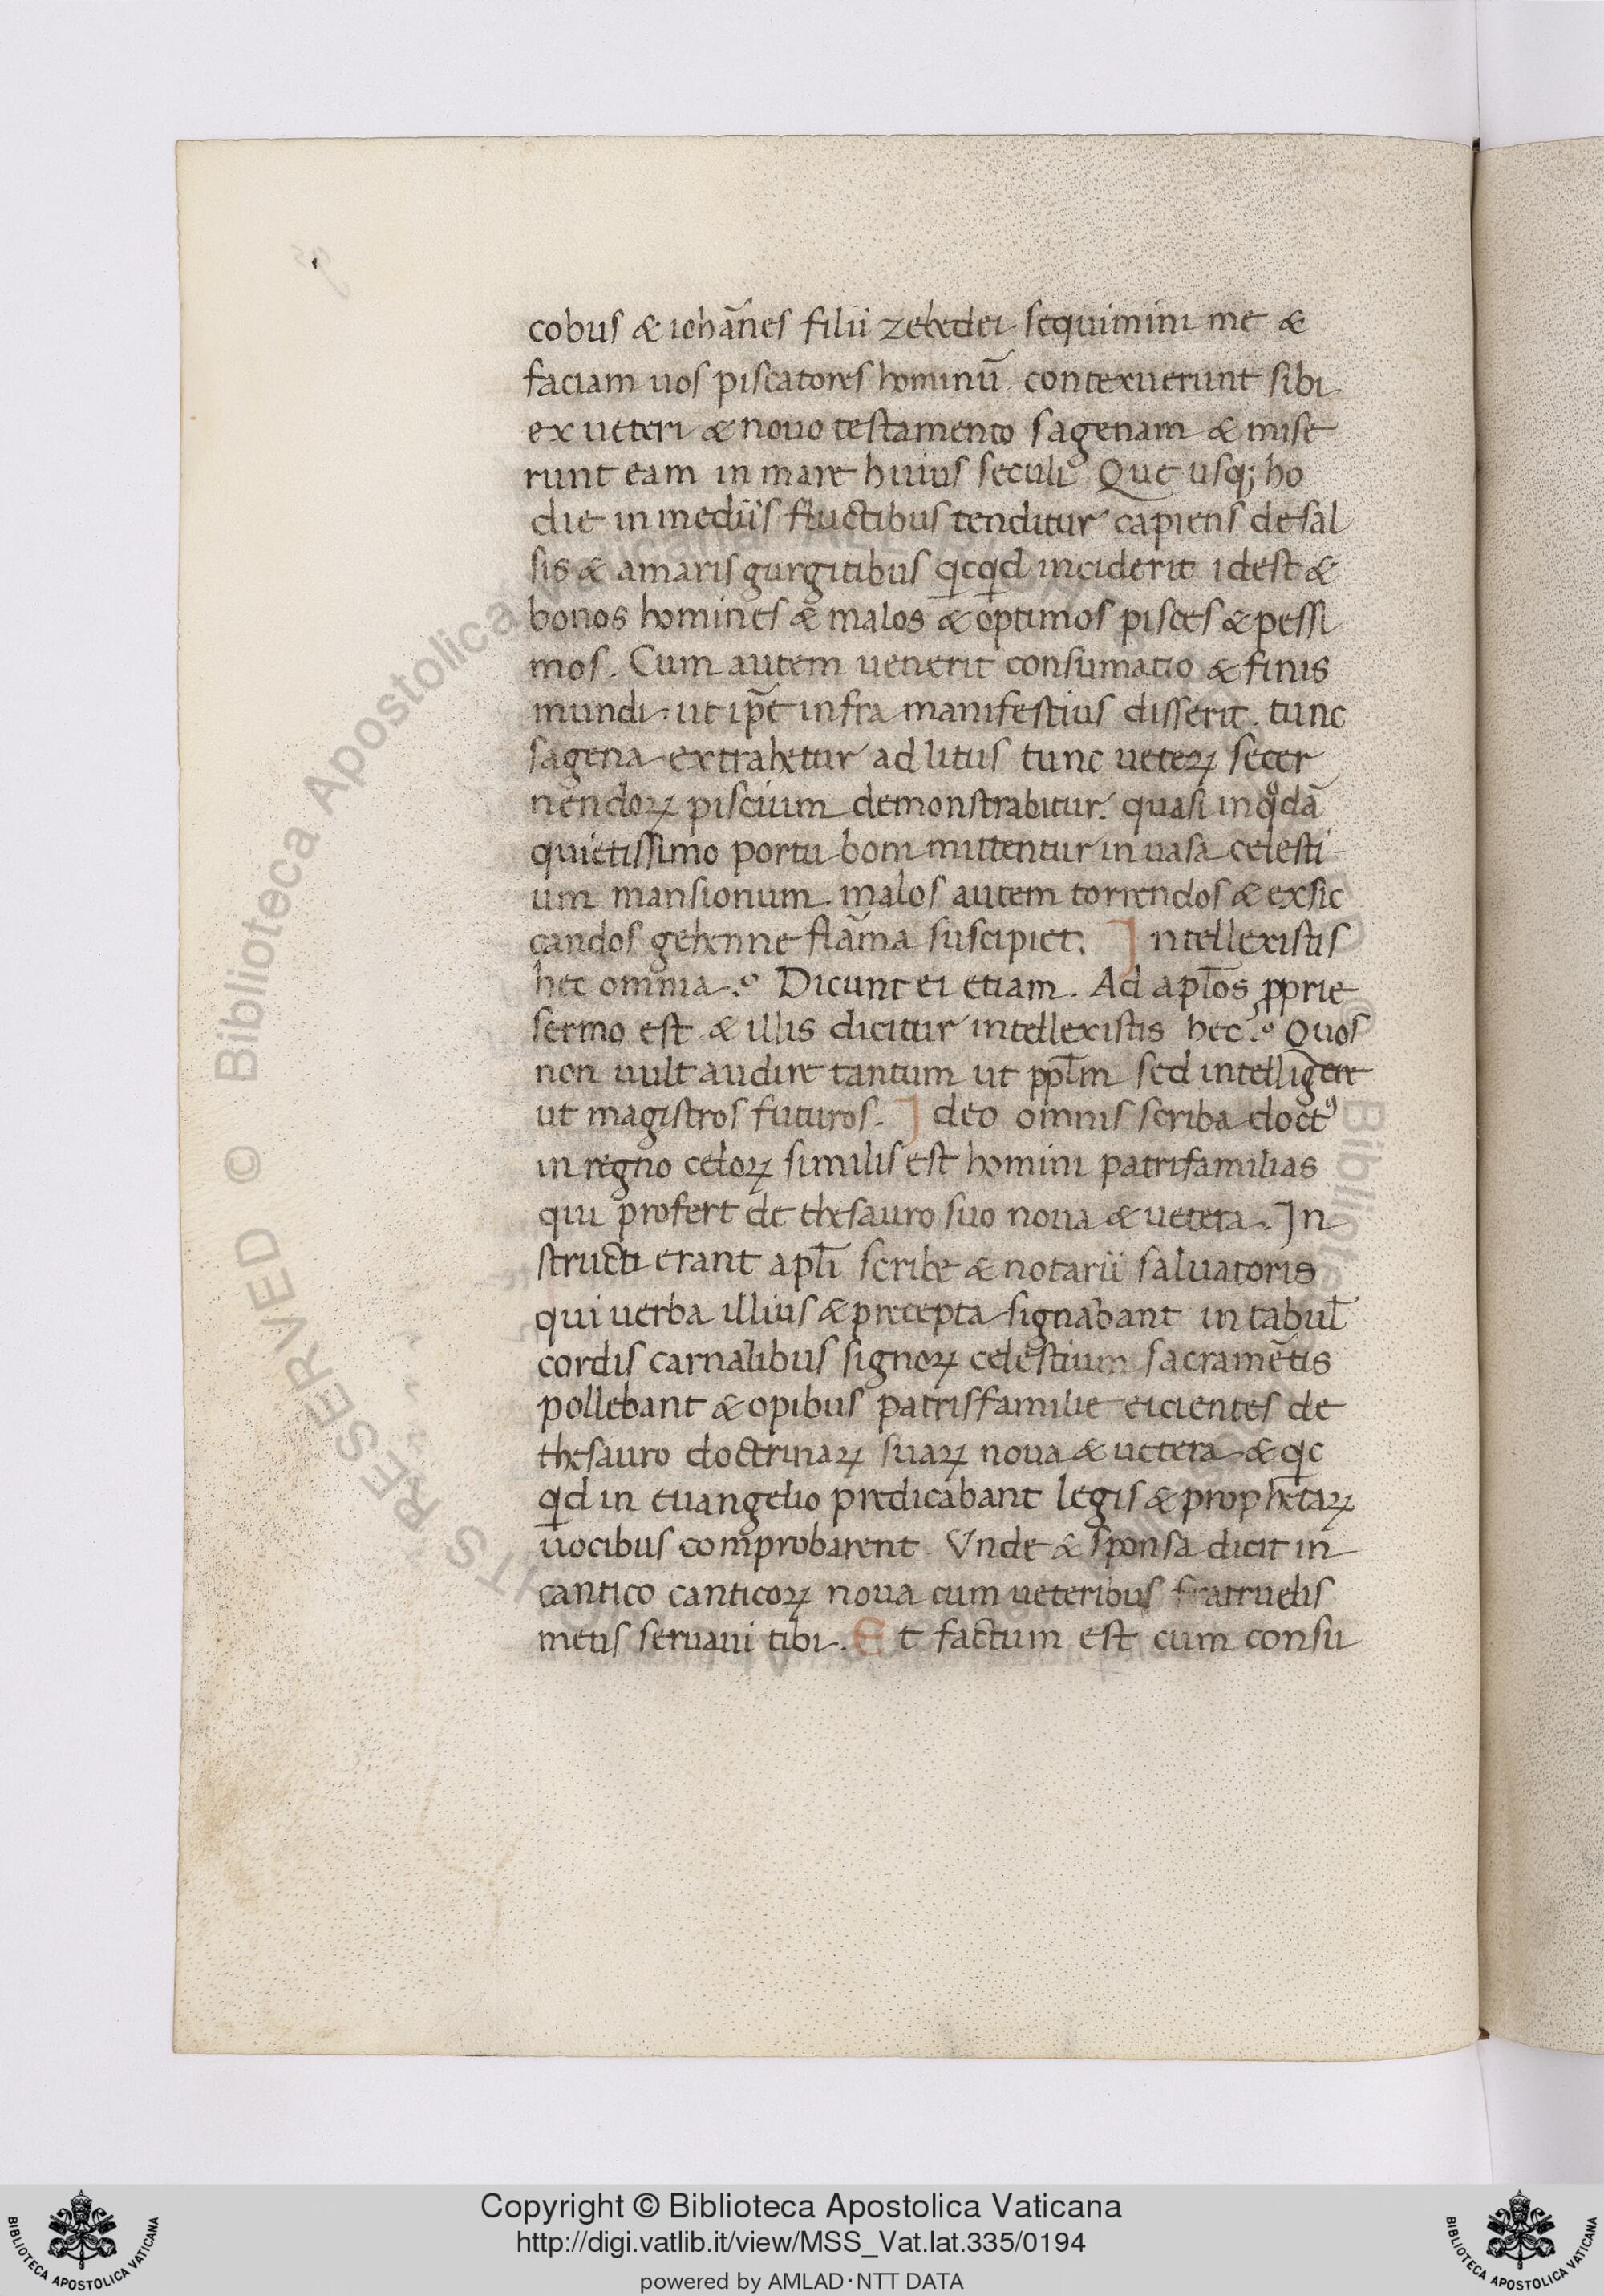 cobus & iohãnes filii zebedei sequimini me &
faciam uos piscatores hominũ. contexuerunt sibi
ex ueteri & nouo testamento sagenam & mise
runt eam in mare huius seculi Que usq; ho
die in mediis fluctibus tenditur capiens de sal
sis & amaris gurgitibus qicqid inciderit idest &
bonos homines & malos & optimos pisces & pessi
mos. Cum autem uenerit consumatio & finis
mundi. ut ip̃e infra manifestius disserit. tunc
sagena extrahetur ad litus tunc ueteꝝ secer
nendoꝝ piscium demonstrabitur. quasi in qodã
quietissimo portu boni mittentur in uasa celesti-
um mansionum. malos autem torrendos & exsic
candos gehenne flãma suscipiet. Intellexistis
hec omnia.° Dicunt ei etiam. Ad apl̃os ꝓprie
sermo est & illis dicitur intellexistis hec.° Quos
non uult audire tantum ut ppl̃m sed intelligere
ut magistros futuros. Ideo omnis scriba doctꝰ
in regno celoꝝ similis est homini patrifamilias
qui profert de thesauro suo noua & uetera. In
structi erant apl̃i scribe & notarii saluatoris
qui uerba illius & precepta signabant in tabul̃
cordis carnalibus signoꝝ celestium sacramẽtis
pollebant & opibus patrisfamilie eicientes de
thesauro doctrinaꝝ suaꝝ noua & uetera & qic
qid in euangelio predicabant legis & prophetaꝝ
uocibus comprobarent. Vnde & sponsa dicit in
cantico canticoꝝ noua cum ueteribus fratruelis
meus seruaui tibi. Et factum est cum consu
Copyright © Biblioteca Apostolica Vaticana
http://digi.vatlib.it/view/MSS_Vat.lat.335/0194
powered by AMLAD·NTT DATA
BIBLIOTECA APOSTOLICA VATICANA
BIBLIOTECA APOSTOLICA VATICANA